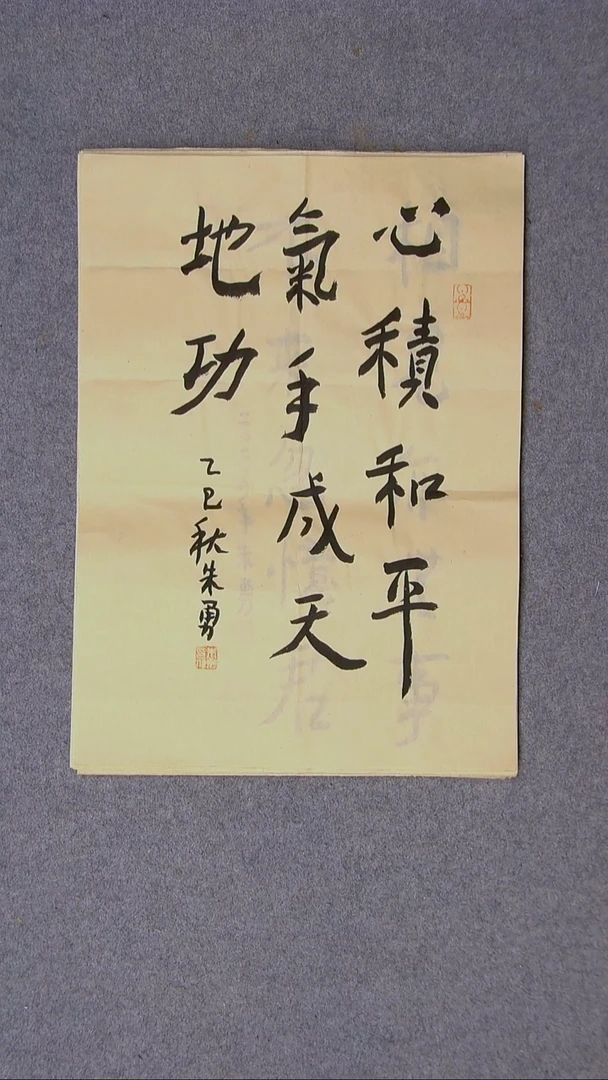 心積和平
氣手成天
地功
乙巳秋朱勇